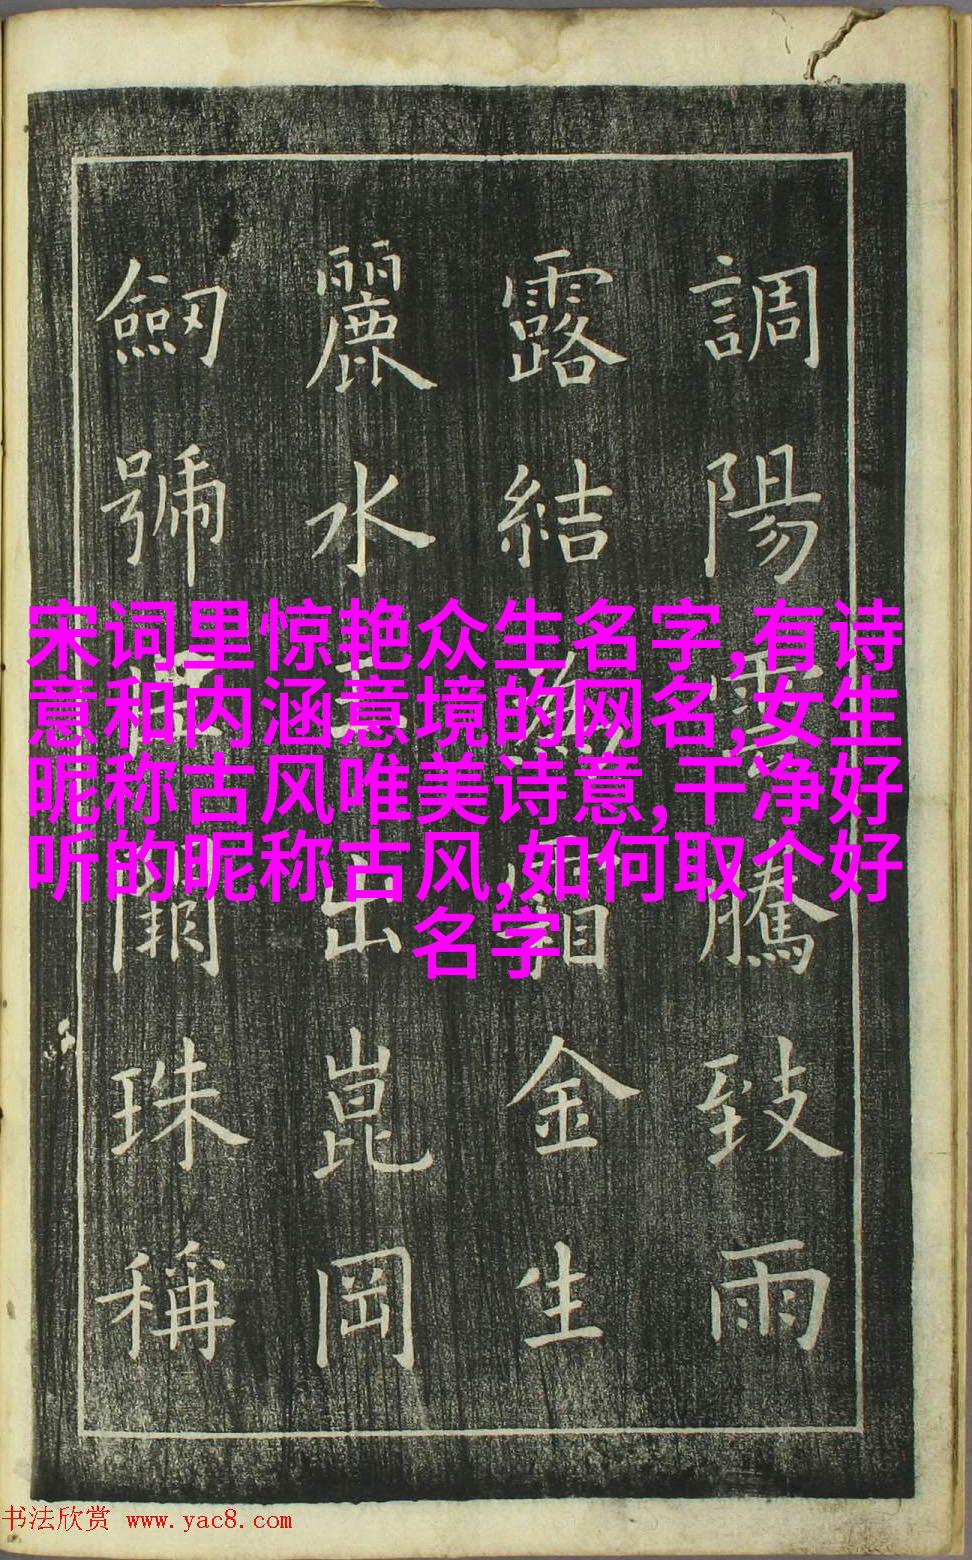 調陽雲騰致雨
露結為霜金生
麗水出崑岡
劒號闕珠稱
宋词里惊艳众生名字,有诗
意和内涵意境的网名,女生
昵称古风唯美诗意,干净好
听的昵称古风,如何取个好
名字
书法欣赏 www.yac8.com